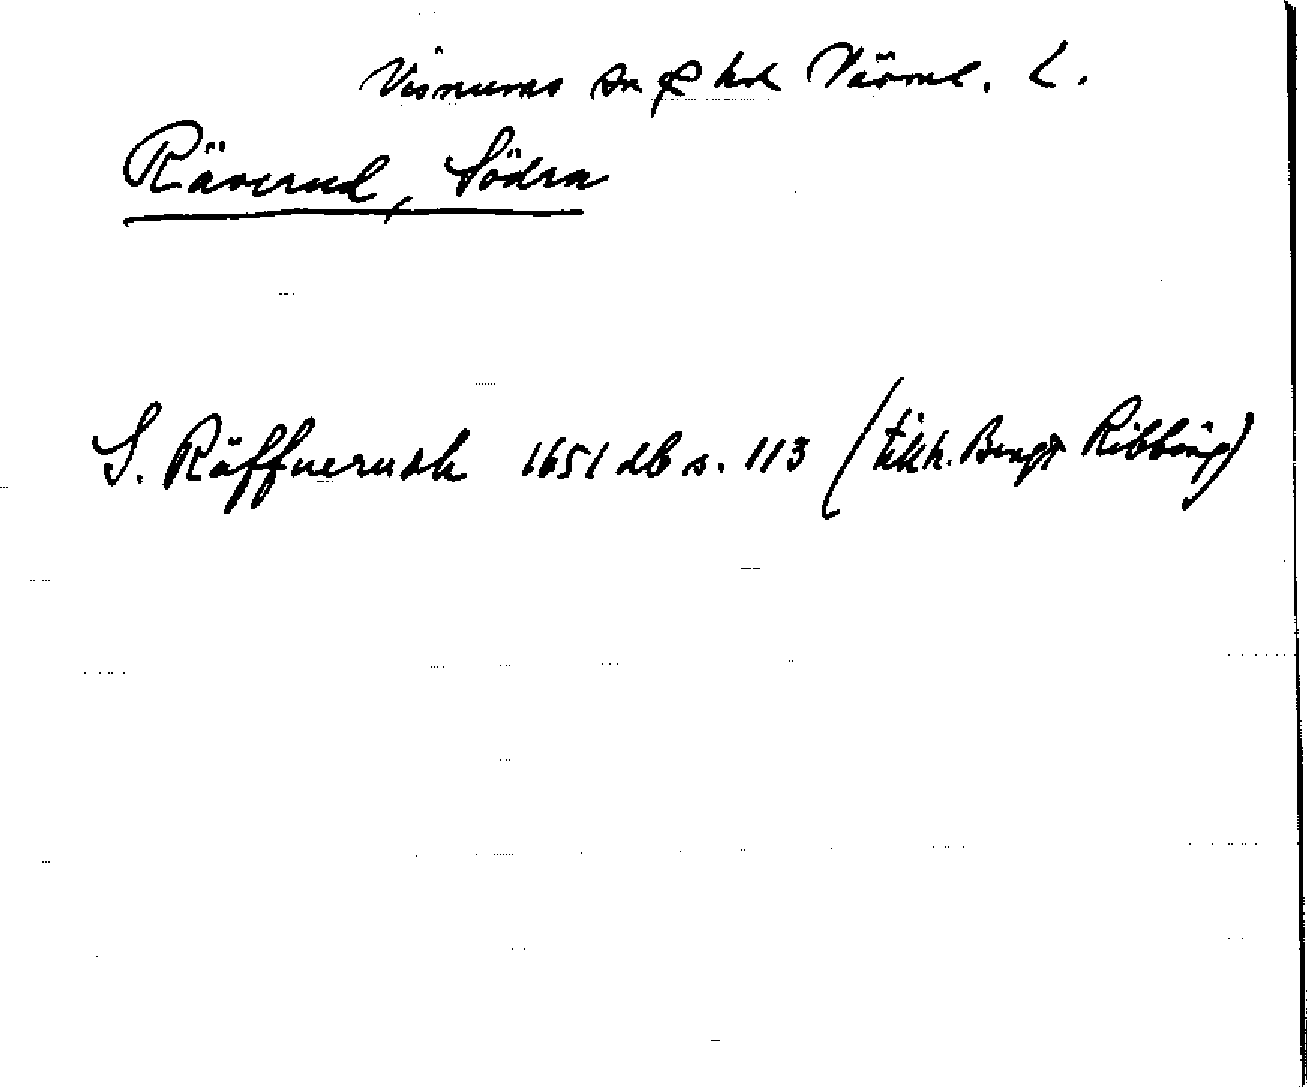 Visnums sn o hd Värml. L.
Räverud, Södra
S. Räffuerudh 1651 db s. 113 (tillh. Bengt Ribbing)